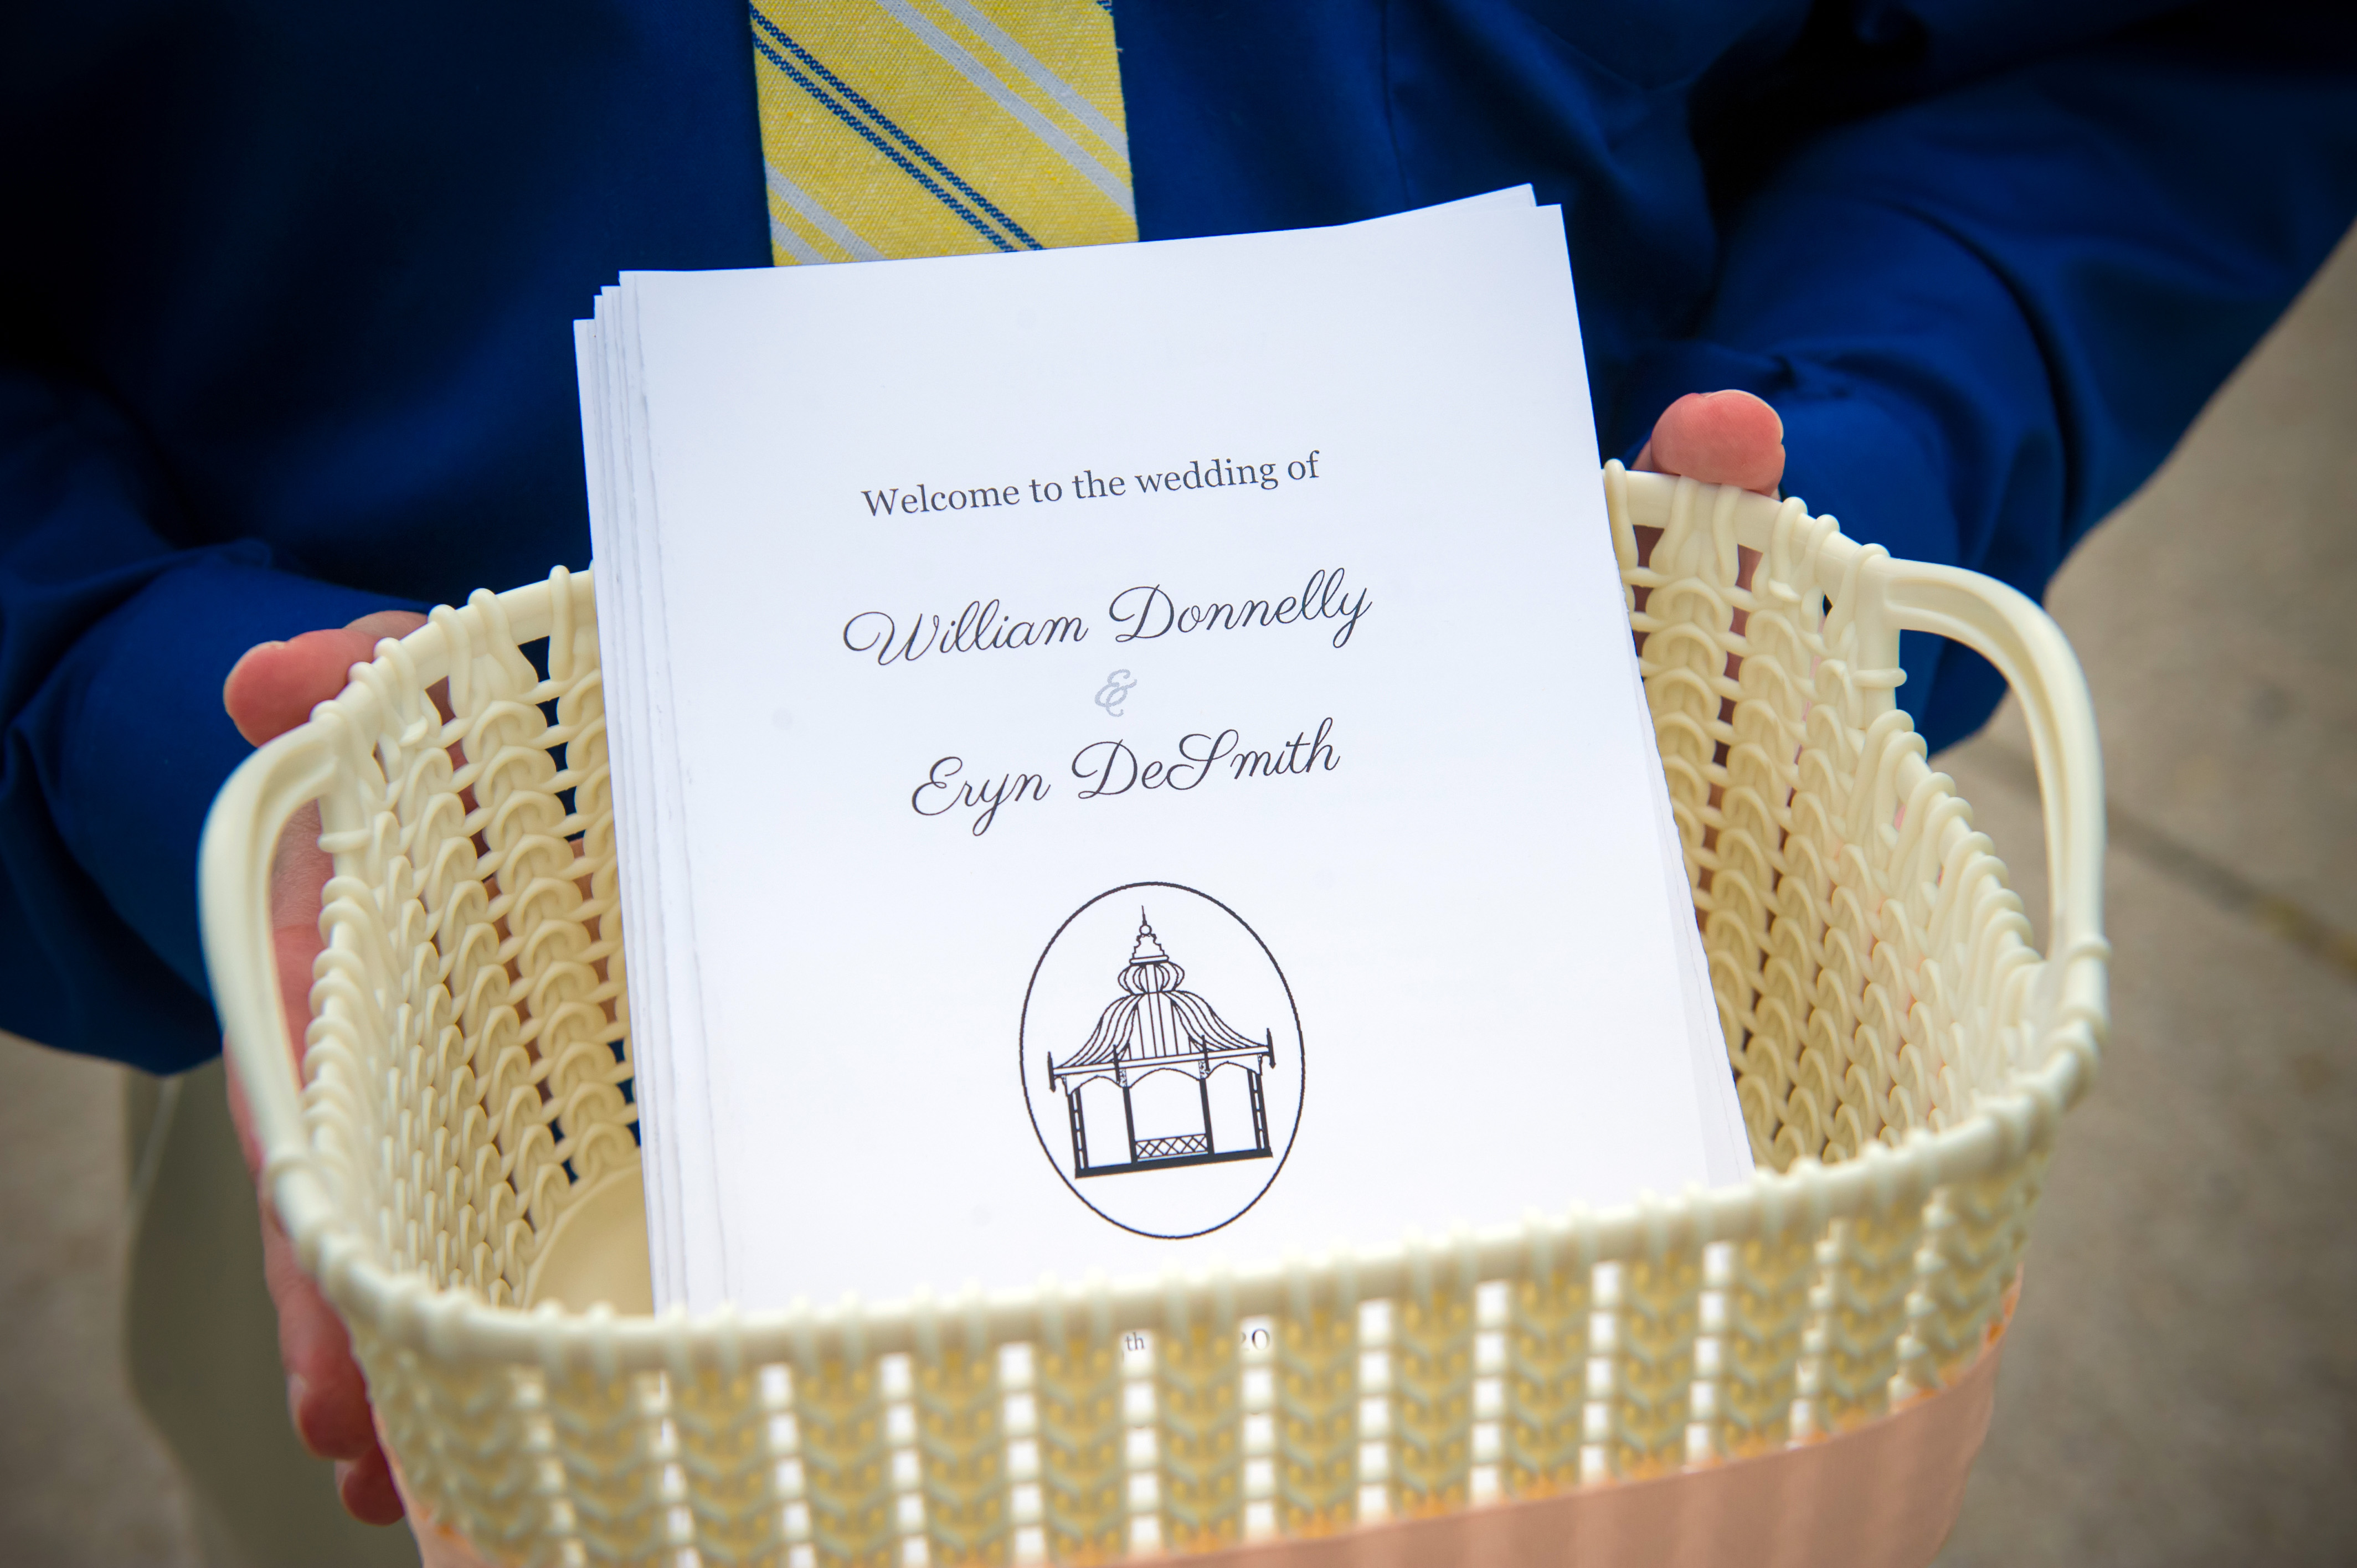 Welcome to the wedding of
William Donnelly
&
Eryn DeSmith
th